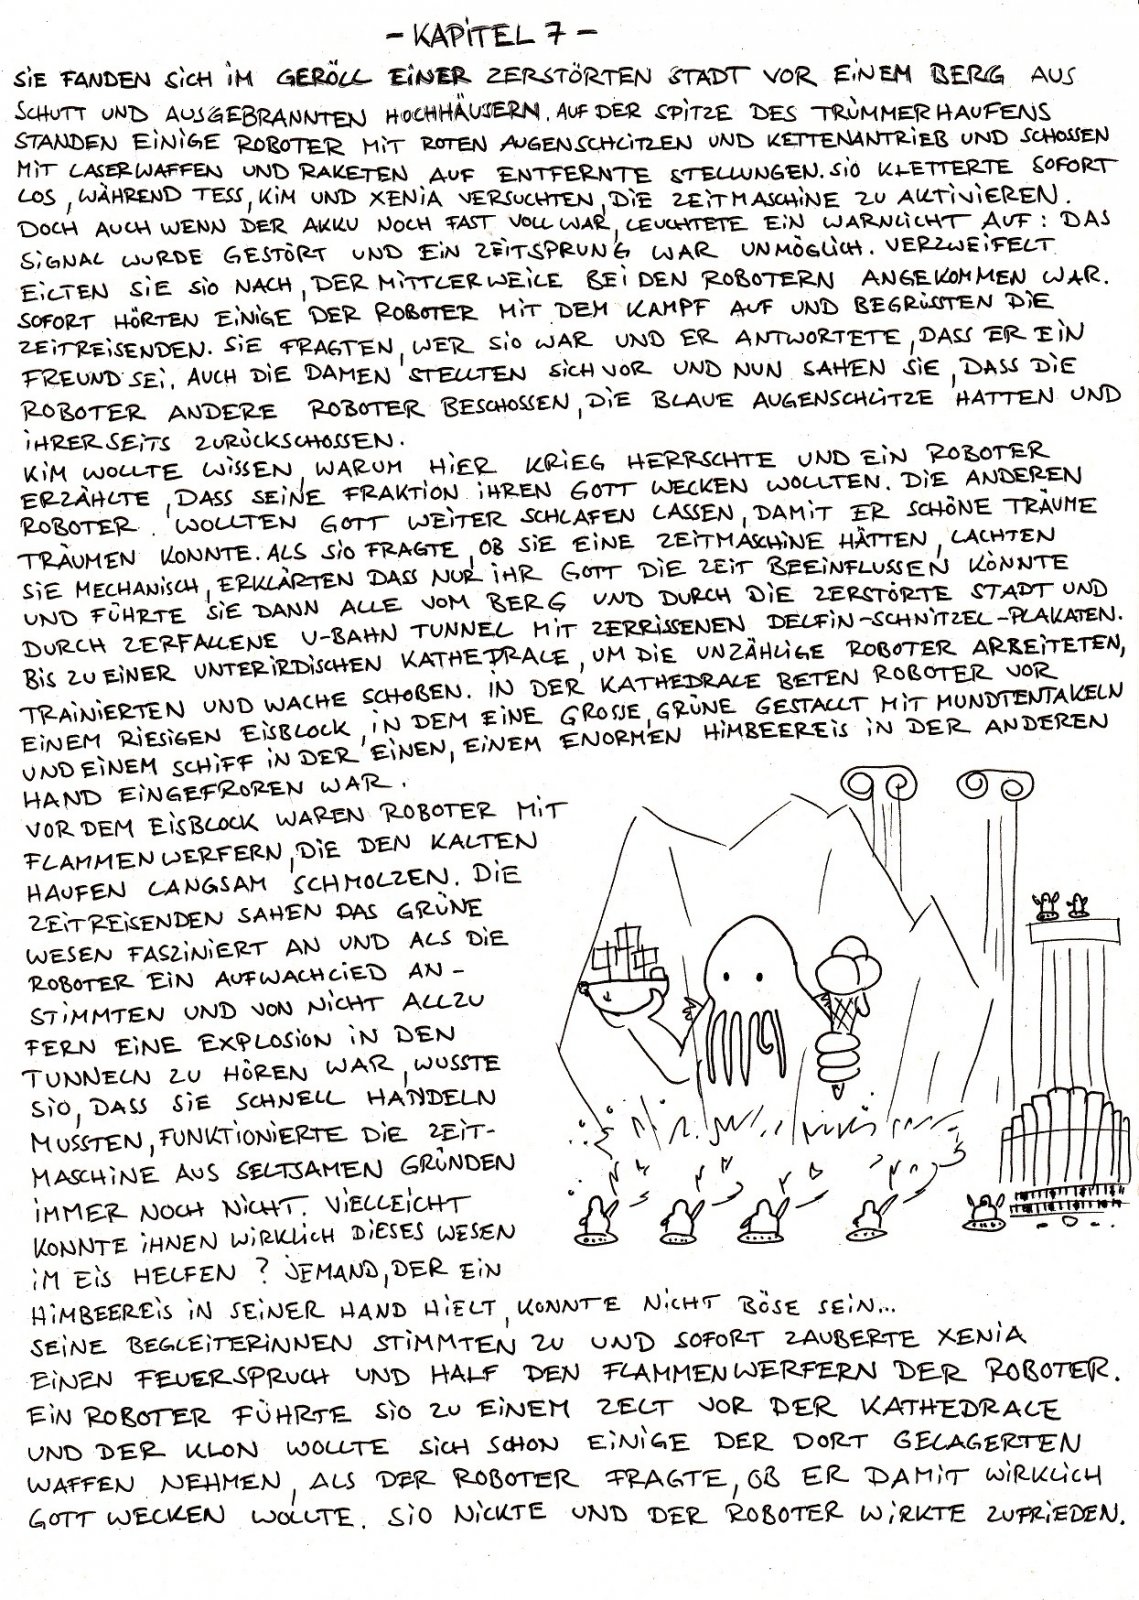 - KAPITEL 7 -
SIE FANDEN SICH IM GERÖLL EINER ZERSTÖRTEN STADT VOR EINEM BERG AUS
SCHUTT UND AUSGEBRANNTEN HOCHHÄUSERN. AUF DER SPITZE DES TRÜMMERHAUFENS
STANDEN EINIGE ROBOTER MIT ROTEN AUGENSCHLITZEN UND KETTENANTRIEB UND SCHOSSEN
MIT LASERWAFFEN UND RAKETEN AUF ENTFERNTE STELLUNGEN. SIO KLETTERTE SOFORT
LOS, WÄHREND TESS, KIM UND XENIA VERSUCHTEN, DIE ZEITMASCHINE ZU AKTIVIEREN.
DOCH AUCH WENN DER AKKU NOCH FAST VOLL WAR, LEUCHTETE EIN WARNLICHT AUF: DAS
SIGNAL WURDE GESTÖRT UND EIN ZEITSPRUNG WAR UNMÖGLICH. VERZWEIFELT
EILTEN SIE SIO NACH, DER MITTLERWEILE BEI DEN ROBOTERN ANGEKOMMEN WAR.
SOFORT HÖRTEN EINIGE DER ROBOTER MIT DEM KAMPF AUF UND BEGRÜSSTEN DIE
ZEITREISENDEN. SIE FRAGTEN, WER SIO WAR UND ER ANTWORTETE, DASS ER EIN
FREUND SEI. AUCH DIE DAMEN STELLTEN SICH VOR UND NUN SAHEN SIE, DASS DIE
ROBOTER ANDERE ROBOTER BESCHOSSEN, DIE BLAUE AUGENSCHLITZE HATTEN UND
IHRERSEITS ZURÜCKSCHOSSEN.
KIM WOLLTE WISSEN, WARUM HIER KRIEG HERRSCHTE UND EIN ROBOTER
ERZÄHLTE, DASS SEINE FRAKTION IHREN GOTT WECKEN WOLLTEN. DIE ANDEREN
ROBOTER WOLLTEN GOTT WEITER SCHLAFEN LASSEN, DAMIT ER SCHÖNE TRÄUME
TRÄUMEN KONNTE. ALS SIO FRAGTE, OB SIE EINE ZEITMASCHINE HÄTTEN, LACHTEN
SIE MECHANISCH, ERKLÄRTEN DASS NUR IHR GOTT DIE ZEIT BEEINFLUSSEN KÖNNTE
UND FÜHRTE SIE DANN ALLE VOM BERG UND DURCH DIE ZERSTÖRTE STADT UND
DURCH ZERFALLENE U-BAHN TUNNEL MIT ZERRISSENEN DELFIN-SCHNITZEL-PLAKATEN.
BIS ZU EINER UNTERIRDISCHEN KATHEDRALE, UM DIE UNZÄHLIGE ROBOTER ARBEITETEN,
TRAINIERTEN UND WACHE SCHOBEN. IN DER KATHEDRALE BETEN ROBOTER VOR
EINEM RIESIGEN EISBLOCK, IN DEM EINE GROSSE, GRÜNE GESTALLT MIT MUNDTENTAKELN
UND EINEM SCHIFF IN DER EINEN, EINEM ENORMEN HIMBEEREIS IN DER ANDEREN
HAND EINGEFROREN WAR.
VOR DEM EISBLOCK WAREN ROBOTER MIT
FLAMMENWERFERN, DIE DEN KALTEN
HAUFEN LANGSAM SCHMOLZEN. DIE
ZEITREISENDEN SAHEN DAS GRÜNE
WESEN FASZINIERT AN UND ALS DIE
ROBOTER EIN AUFWACHLIED AN-
STIMMTEN UND VON NICHT ALLZU
FERN EINE EXPLOSION IN DEN
TUNNELN ZU HÖREN WAR, WUSSTE
SIO, DASS SIE SCHNELL HANDELN
MUSSTEN, FUNKTIONIERTE DIE ZEIT-
MASCHINE AUS SELTSAMEN GRÜNDEN
IMMER NOCH NICHT. VIELLEICHT
KONNTE IHNEN WIRKLICH DIESES WESEN
IM EIS HELFEN? JEMAND, DER EIN
HIMBEEREIS IN SEINER HAND HIELT, KONNTE NICHT BÖSE SEIN...
SEINE BEGLEITERINNEN STIMMTEN ZU UND SOFORT ZAUBERTE XENIA
EINEN FEUERSPRUCH UND HALF DEN FLAMMENWERFERN DER ROBOTER.
EIN ROBOTER FÜHRTE SIO ZU EINEM ZELT VOR DER KATHEDRALE
UND DER KLON WOLLTE SICH SCHON EINIGE DER DORT GELAGERTEN
WAFFEN NEHMEN, ALS DER ROBOTER FRAGTE, OB ER DAMIT WIRKLICH
GOTT WECKEN WOLLTE. SIO NICKTE UND DER ROBOTER WIRKTE ZUFRIEDEN.